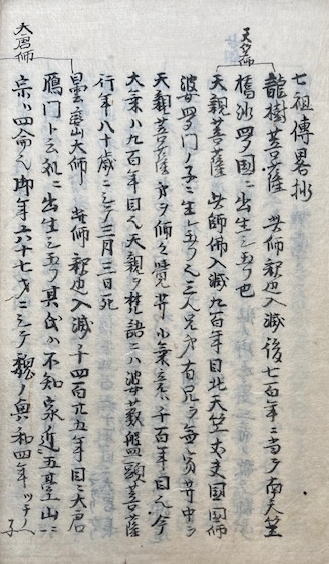 七祖傳畧抄
天竺師
龍樹菩薩 此師釈迦入滅後七百年ニ當テ南天竺
憍沙羅国ニ出生シ玉フ也
天親菩薩 此師佛入滅九百年目北天竺丈夫国国師
婆羅門ノ子ニ生玉フ人三人兄弟有兄ヲ無著
天親菩薩 千百年目ノ人今
大乗ハ九百年目ノ人天親ヲ梵語ニハ婆藪盤頭菩薩
行年八十歳ニシテ三月三日死
大唐師
曇鸞大師 此師釈迦入滅ヨリ千四百廿五年目ニ大唐
鴈門ト云処ニ出生シ玉フ其氏ハ不知家近五臺山ニ
御年六十七才ニシテ魏ノ興和四年ツチノヘ子